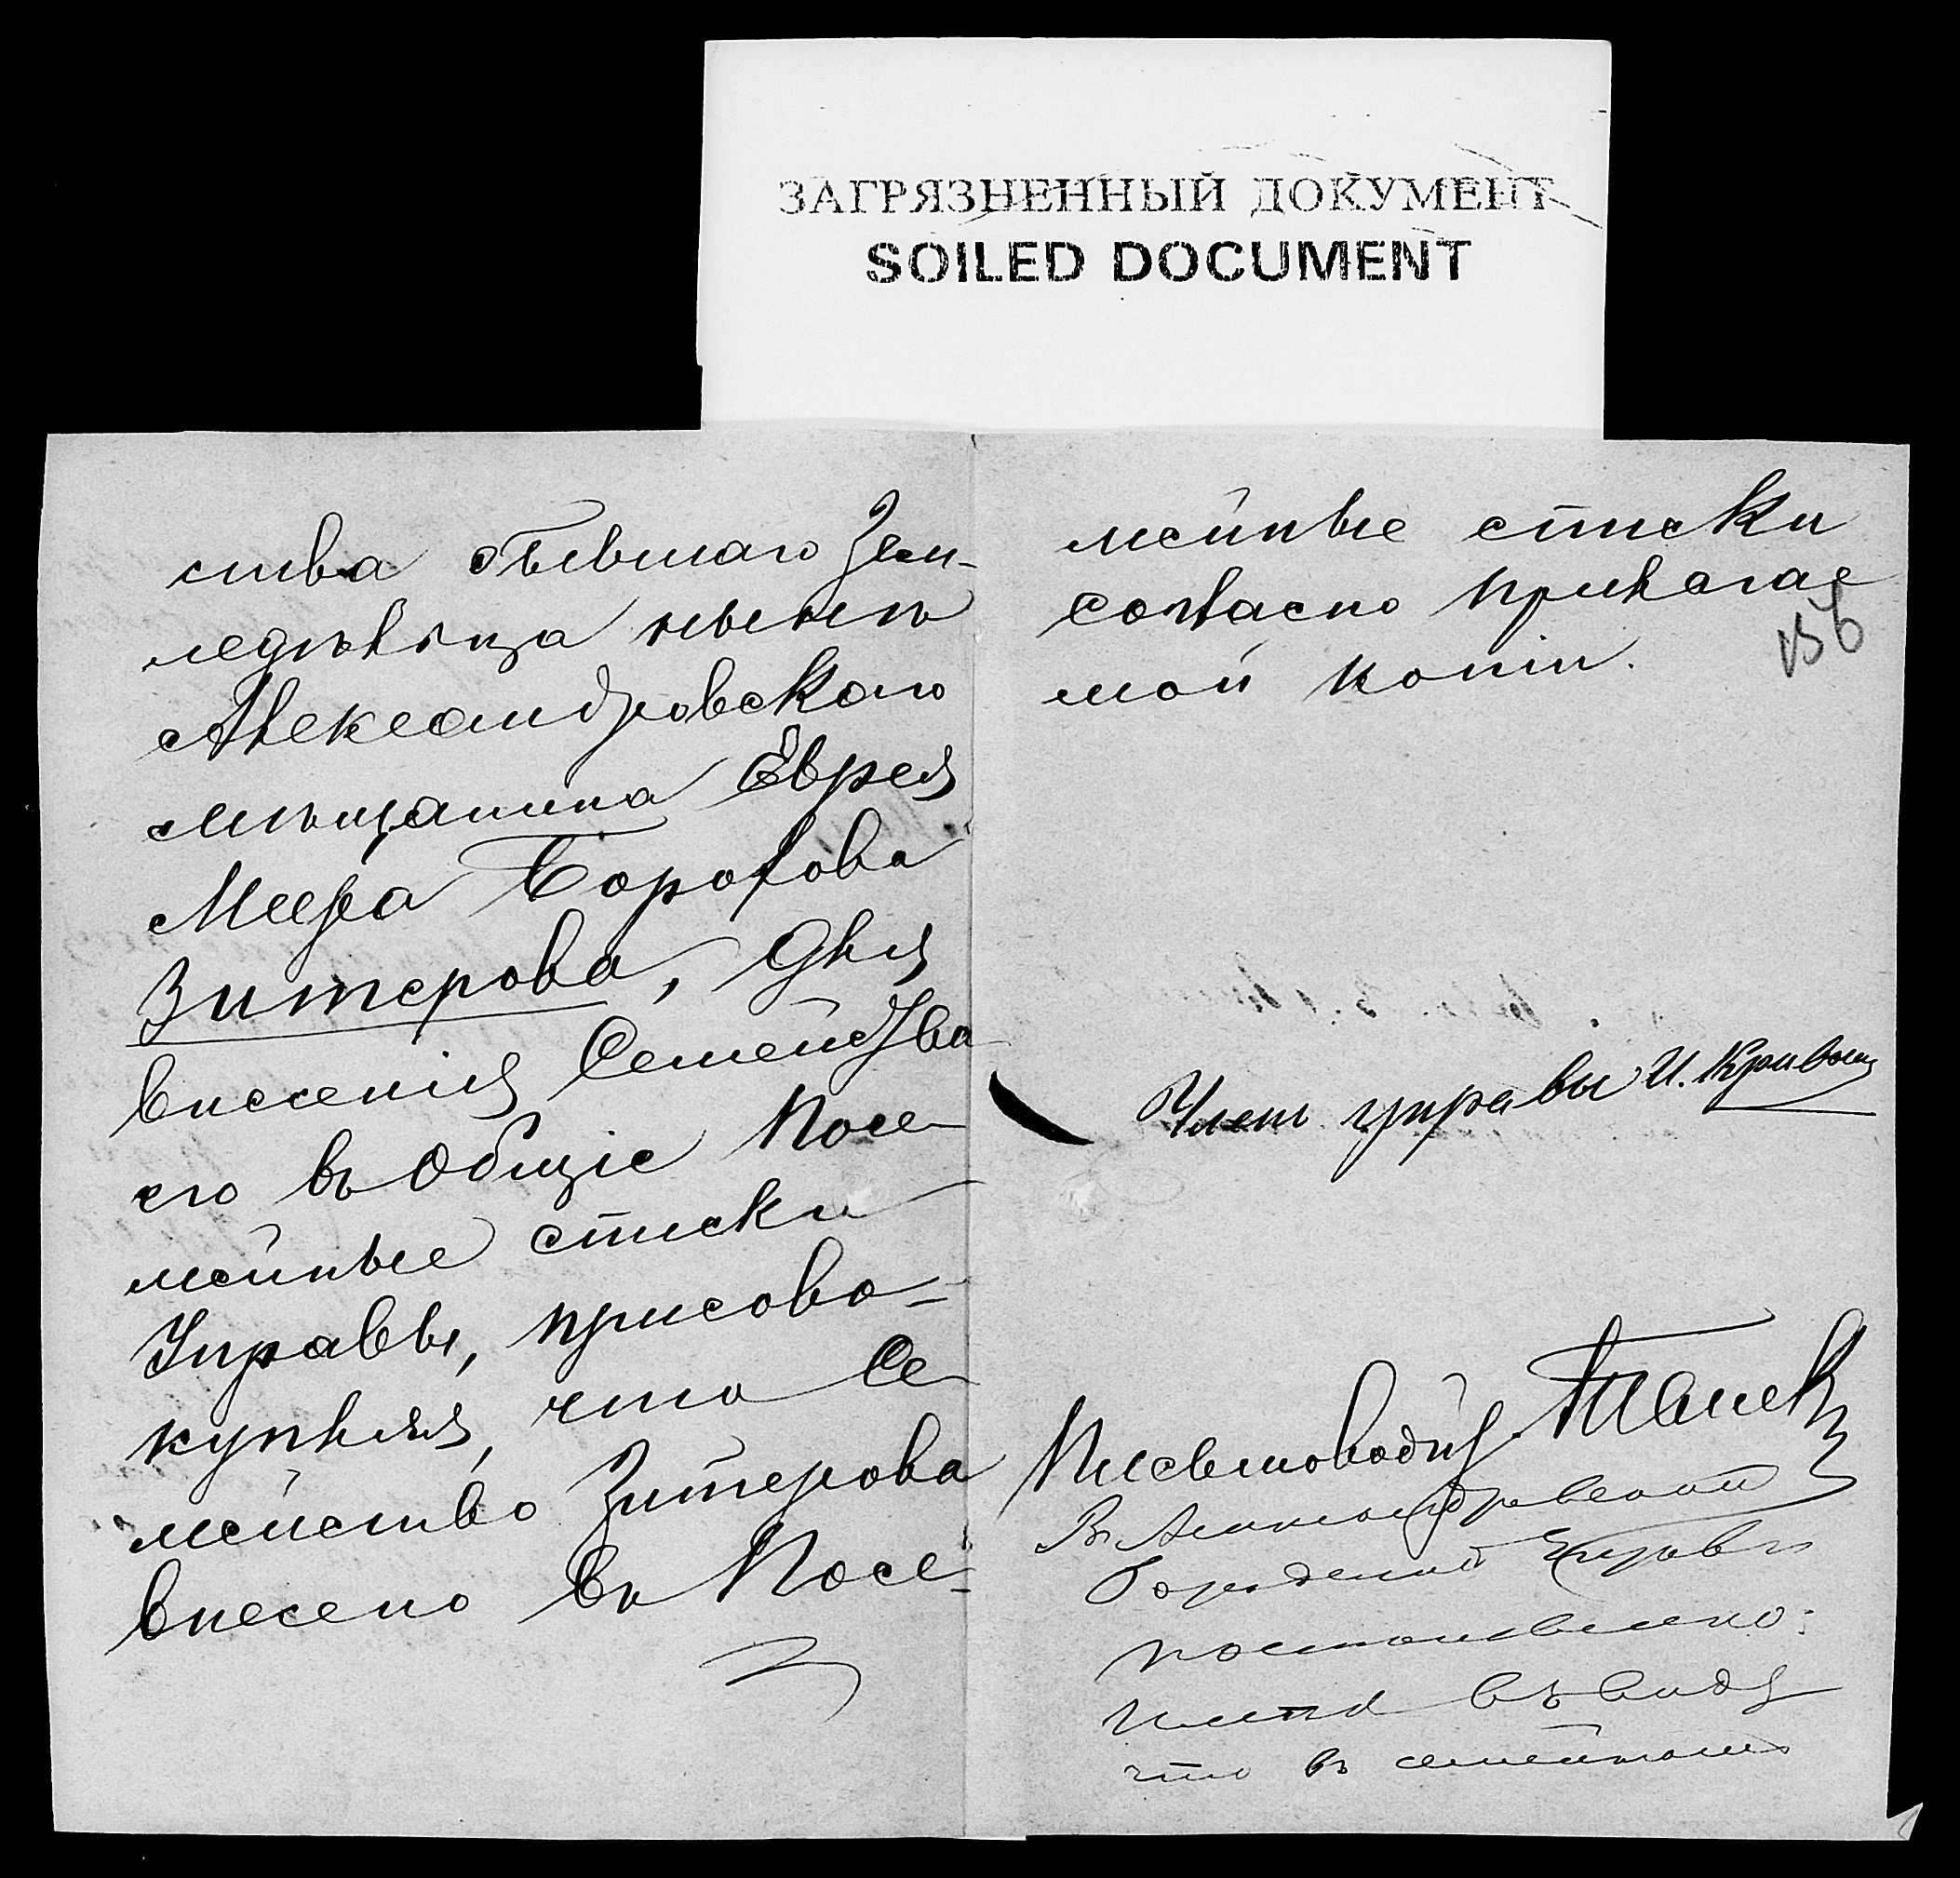 ЗАГРЯЗНЕННЫЙ ДОКУМЕНТ
SOILED DOCUMENT
ства бывшаго Зем-
ледѣльца нынѣ
Александровскаго
мѣщанина Еврея
Меера Борохова
Зитерова, для
внесенія Семейства
его въ Общіе Посе-
мейные списки
Управы, присово-
купляя, что Се-
мейство Зитерова
внесено въ Посе-
мейные списки
согласно прилагае
мой копіи.
156
Членъ управы И.
Письмоводит.
Въ Александровской
Городской Управѣ
постановлено:
имѣя въ виду
что въ семейномъ